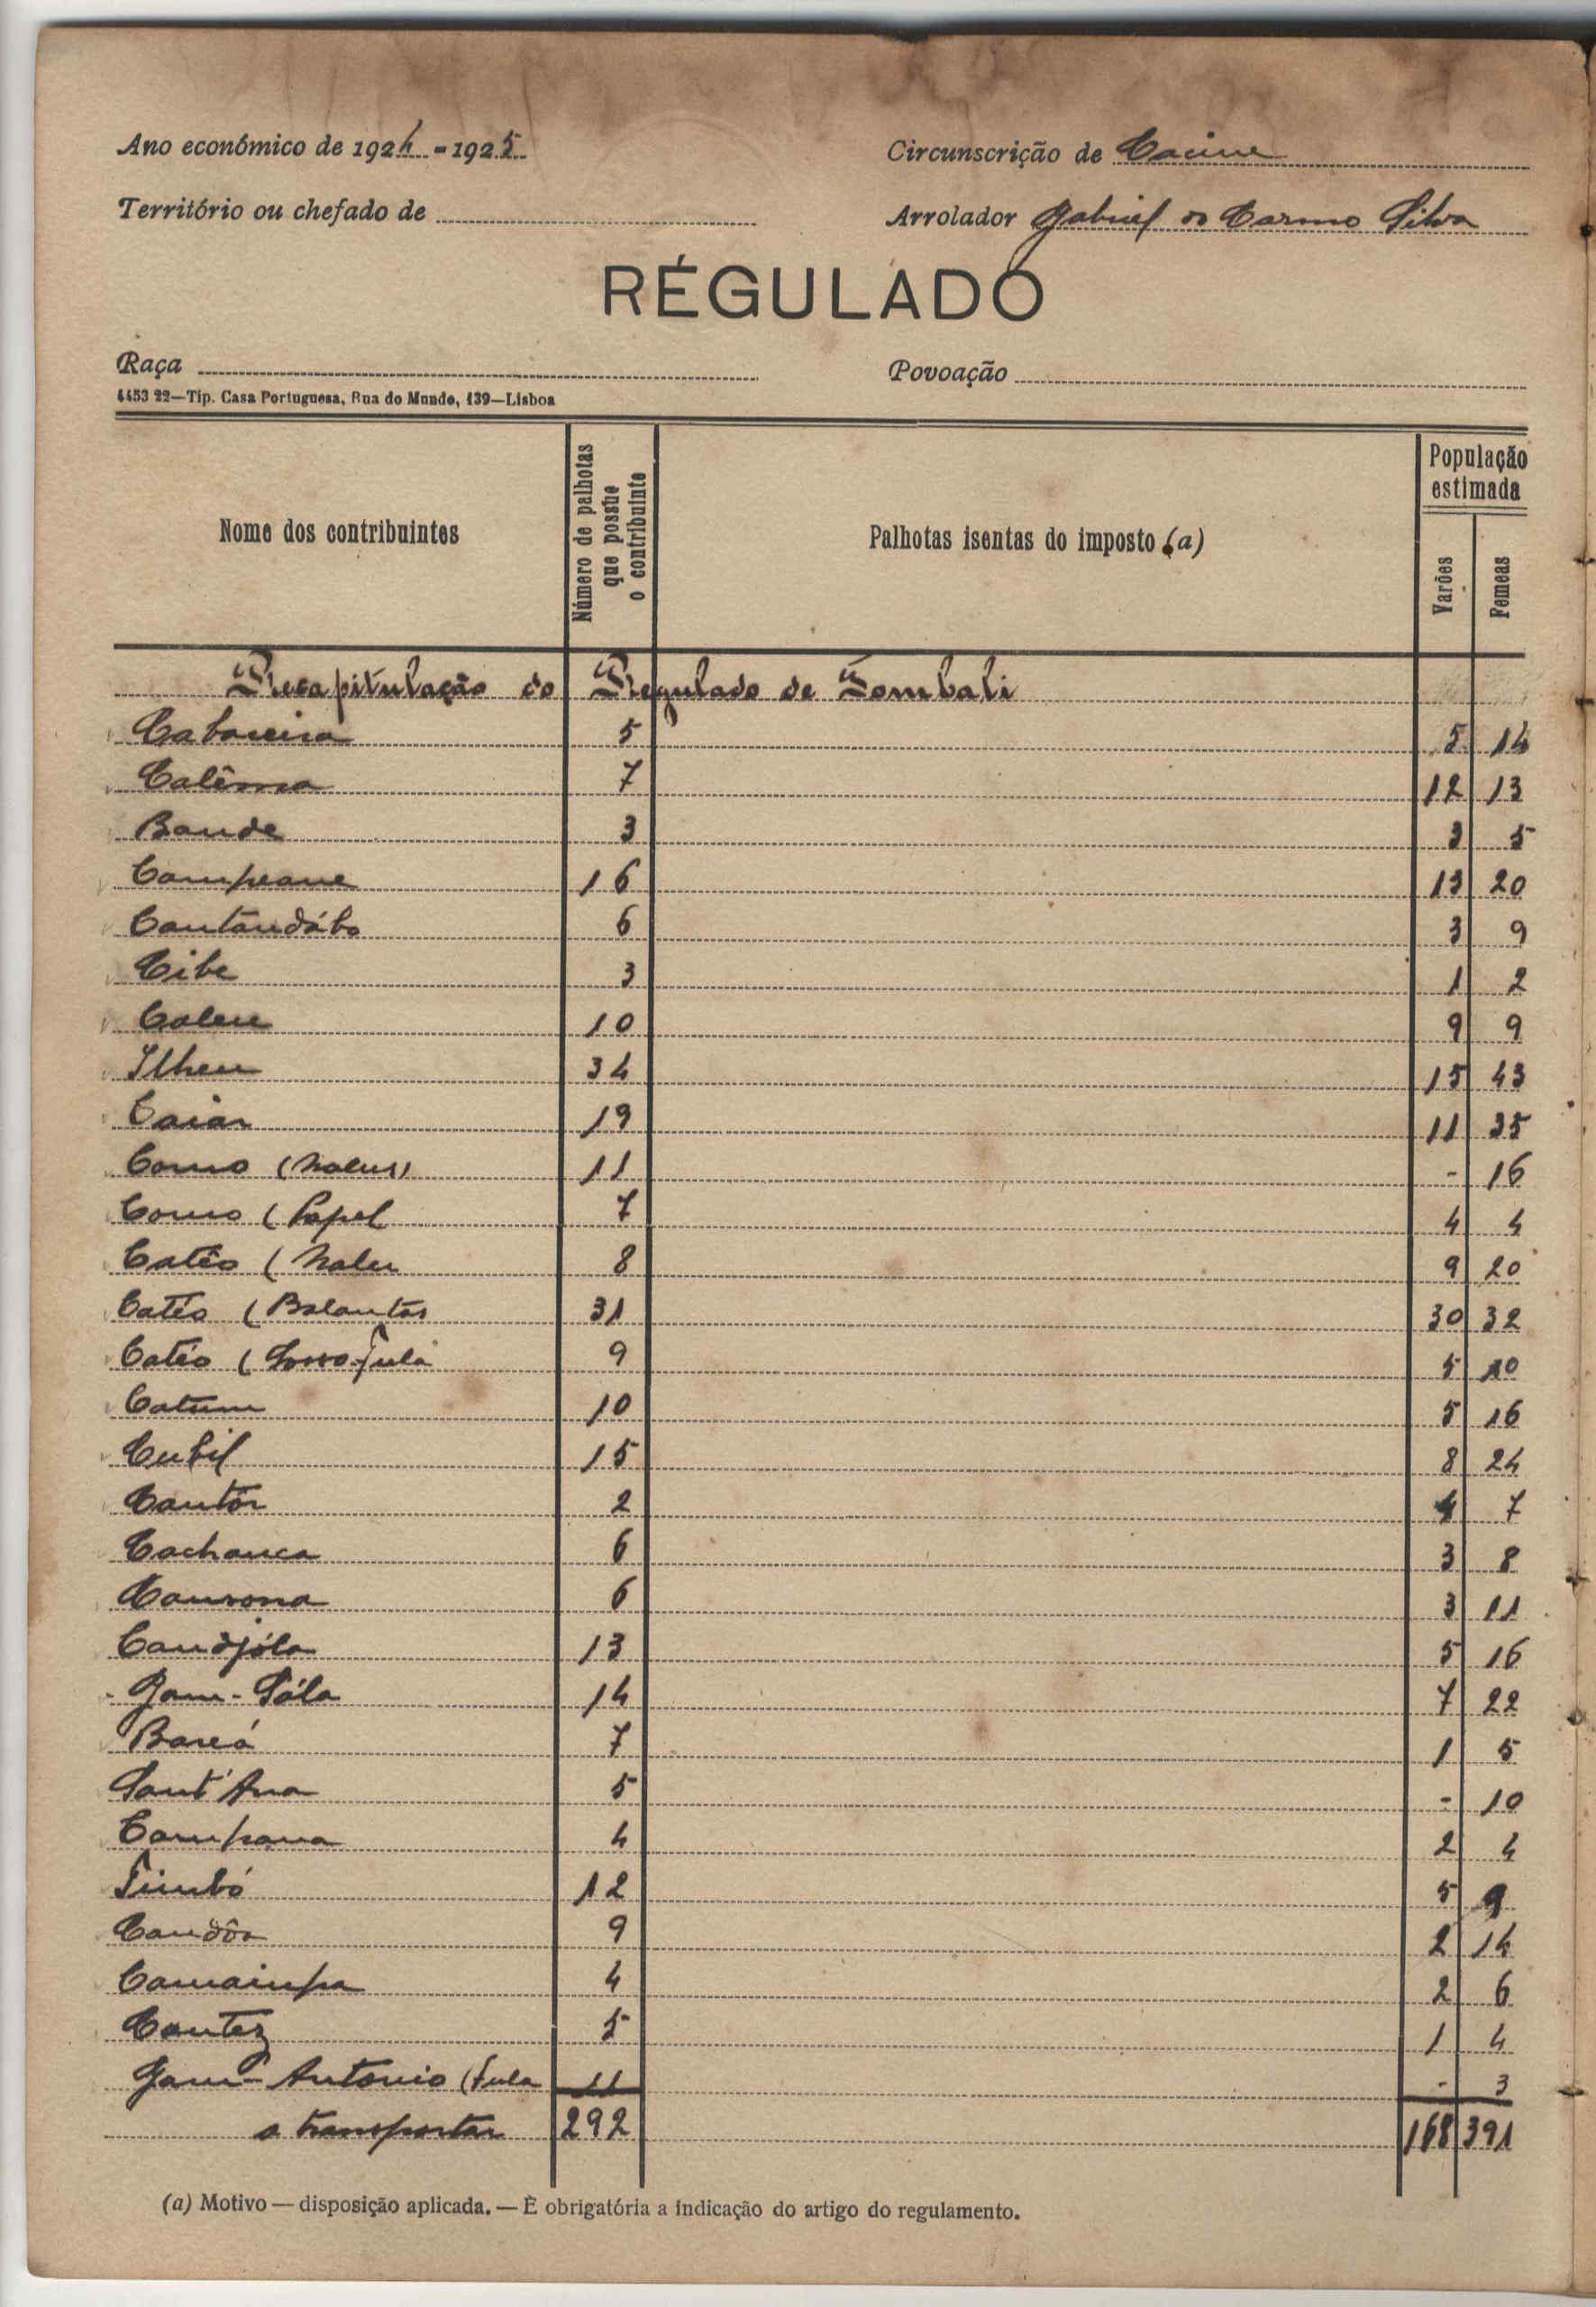 Ano económico de 1924 - 1925
Circunscrição de Cacine
Território ou chefado de
Arrolador Gabriel do Carmo Silva
RÉGULADO
Raça
Povoação
4453 22—Tip. Casa Portuguesa, Rua do Mundo, 139—Lisboa
Nome dos contribuintes
Número de palhotas que possue o contribuinte
Palhotas isentas do imposto (a)
População estimada
Varões
Femeas
Recapitulação do Regulado de Tombali
Cabaceira 5 5 14
Calêma 7 12 13
Bande 3 3 5
Campeane 16 13 20
Cantandábo 6 3 9
Cibe 3 1 2
Caleu 10 9 9
Ilheu 34 15 43
Caiar 19 11 35
Como (Nalus) 11 - 16
Como (Papel 7 4 4
Catéo (Nalu 8 9 20
Catéo (Balantas 31 30 32
Catéo (Sosso-Fula 9 5 10
Catum 10 5 16
Cubil 15 8 24
Cantôr 2 4 7
Cachanca 6 3 8
Causona 6 3 11
Candjóla 13 5 16
Gam-Sála 14 7 22
Bareá 7 1 5
Sant'Ana 5 - 10
Campana 4 2 4
Timbó 12 5 9
Candôa 9 2 14
Camainpa 4 2 6
Cantez 5 1 4
Gam-Antonio (Fula 11 - 3
a transportar 292 168 391
(a) Motivo — disposição aplicada. — È obrigatória a indicação do artigo do regulamento.